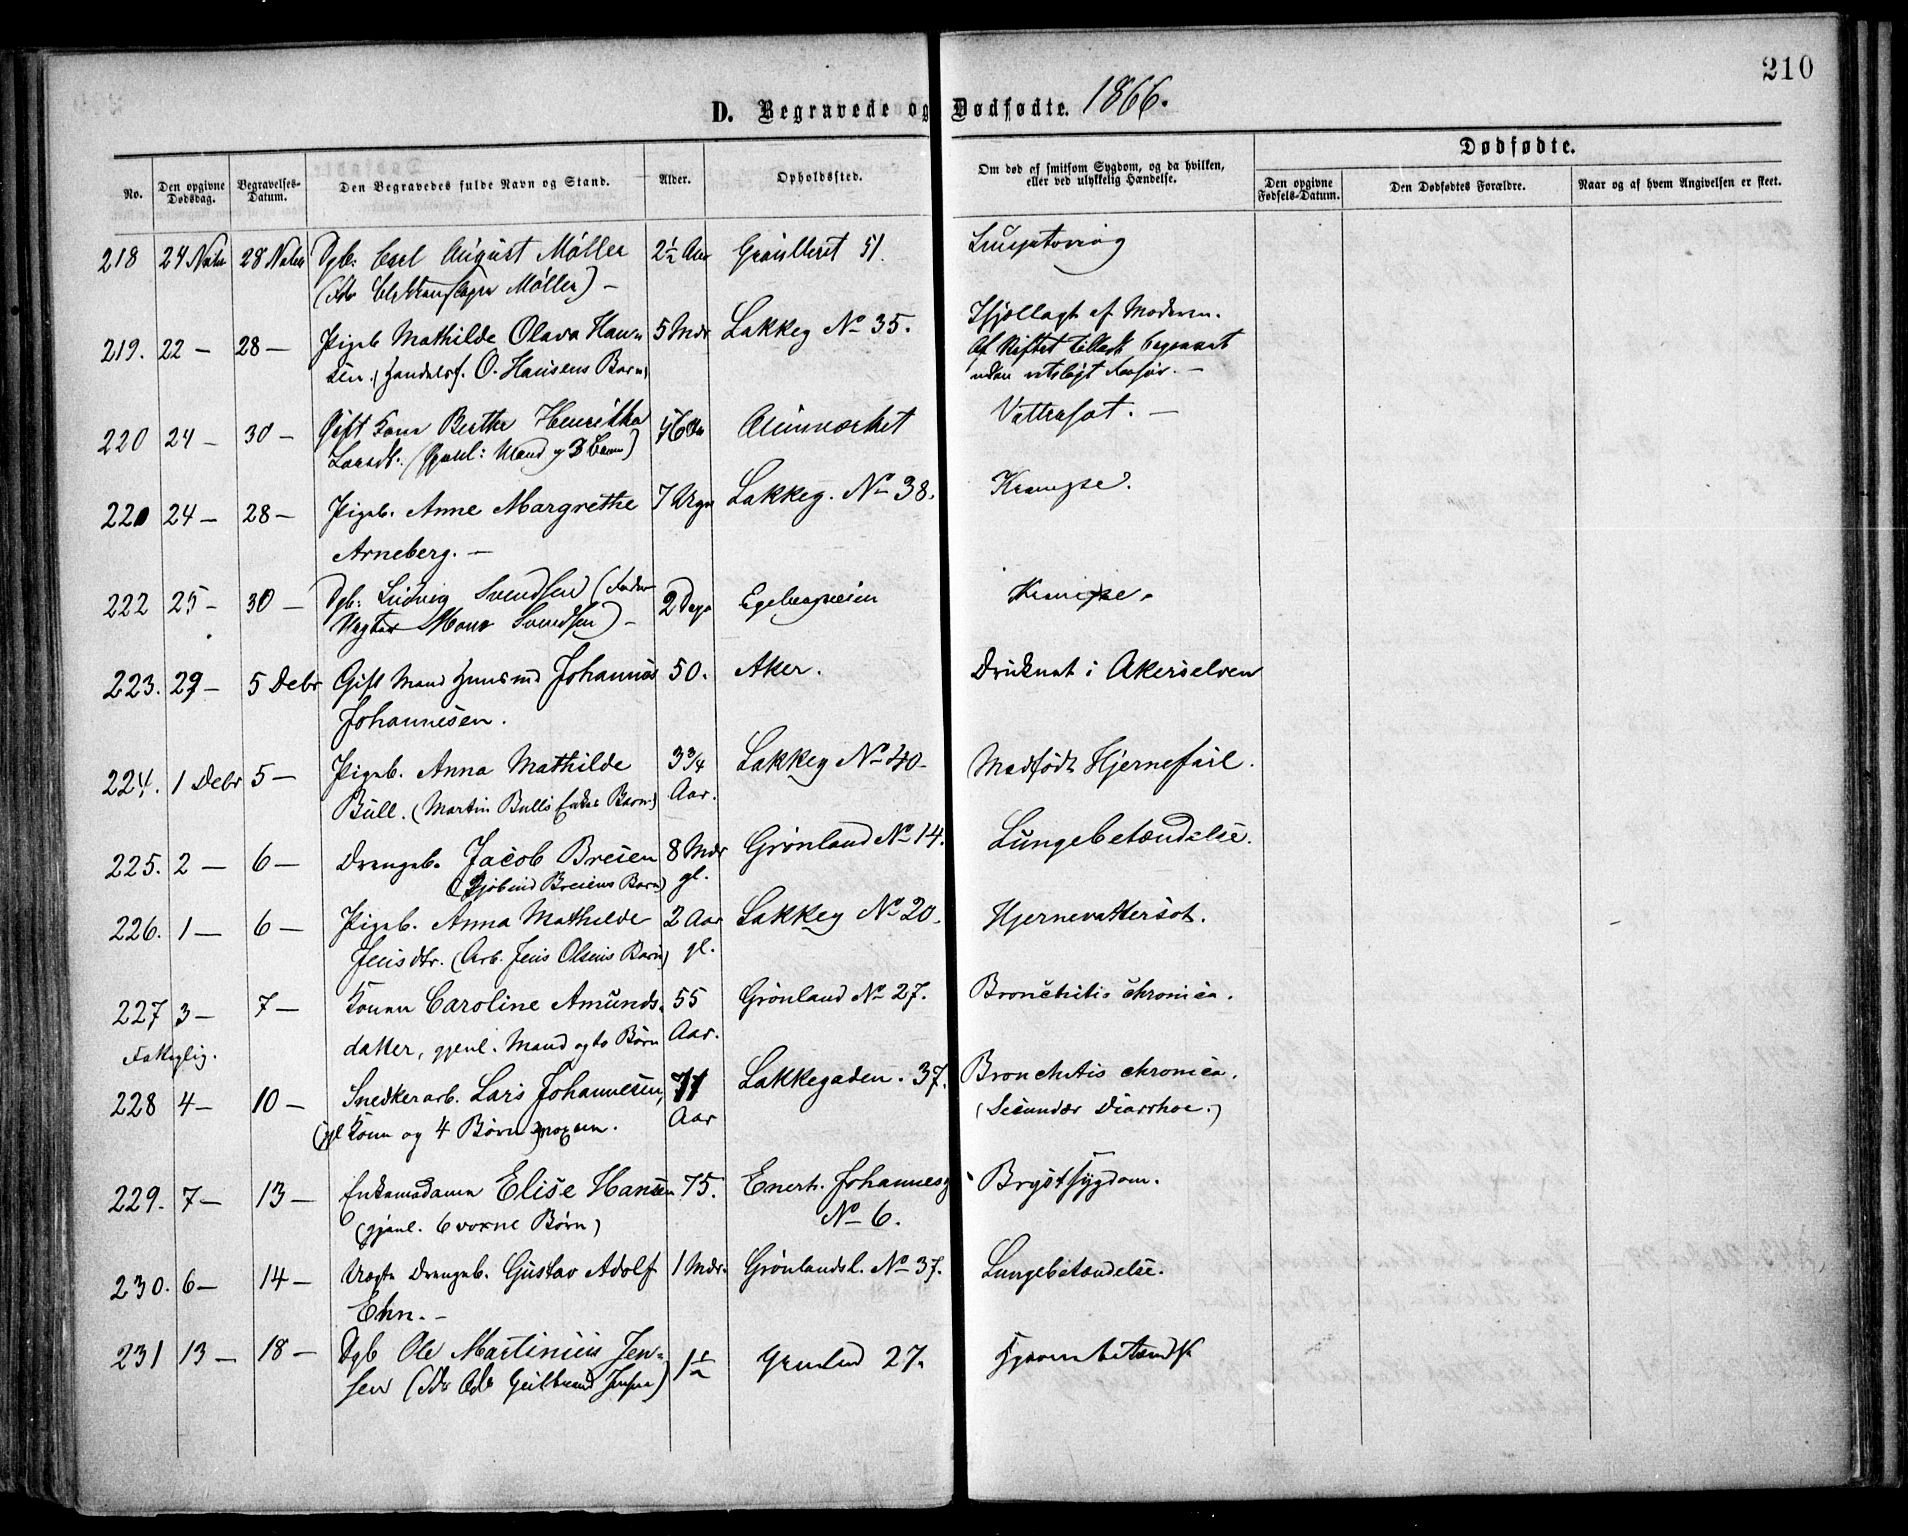 210
D. Begravede og Dødfødte. 1866.
No. Den opgivne Dødsdag. Begravelses-Datum. Den Begravedes fulde Navn og Stand. Alder. Opholdssted. Om død af smitsom Sygdom, og da hvilken, eller ved ulykkelig Hændelse. Dødfødte.
Den opgivne Fødsels-Datum. Den Dødfødtes Forældre. Naar og af hvem Angivelsen er skeet.
218 24 28 Dgb. Carl August Møller 2½ Aar 51.
Møller) –
219. 22 – 28 – Pigeb. Mathilde Olava Han- 5 Mdr Lakkeg No 35. Ihjellagt af Moderen.
sen. ( O. Hansens Barn) Af Skiftet tilladt begravet
uden
220 24 – 30 – Gift Kone Berthe 46 Vattersot. –
Mand og 3
221 24 – 28 – Pigeb. Anne Margrethe 7 Lakkeg. No 38. Krampe.
Arneberg. –
222 25 – 30 – Dgb: Ludvig Svendsen (Fader 2 Dage Krampe.
Svendsen) –
223. 29 – 5 Debr Gift Mand Johannes 50. Aker. Druknet i Akerselven
Johannesen.
224. 1 Debr 5 – Pigeb. Anna Mathilde 3¾ Lakkeg No 40 – Medfødt Hjernefeil.
Bull. (Martin Bulls Enkes Barn) Aar.
225. 2 – 6 – Drengeb. Jacob Breien 8 Mdr Grønland No 14. Lungebetændelse.
( Breiens Barn) gl.
226. 1 – 6 – Pigeb. Anna Mathilde 2 Aar Lakkeg No 20. Hjernevattersot.
Jensdtr. (Arb. Jens Olsens Barn) gl.
227 3 – 7 – Konen Caroline Amunds- 55 Grønland No 27. Bronchitis chronica.
Fattiglig. datter, gjenl. Mand og to Børn Aar.
228 4 – 10 – Snedkerarb. Lars Johannesen, 71 Lakkegaden. 37. Bronchitis chronica.
(gjl Kone og 4 Børn) Aar (Secundær Diarrhoe.)
229. 7 – 13 – Enkemadame Elise Hansen 75. Enerh. Johannesg Brystsygdom.
(gjenl. 6 voxne Børn) No 6.
230. 6 – 14 – Uægte Drengeb. Gustav Adolf 1 Mdr. Grønlandsl. No 37. Lungebetændelse.
Ehn. –
231 13 – 18 – Dgb Ole Martinius Jen- 27.
sen (